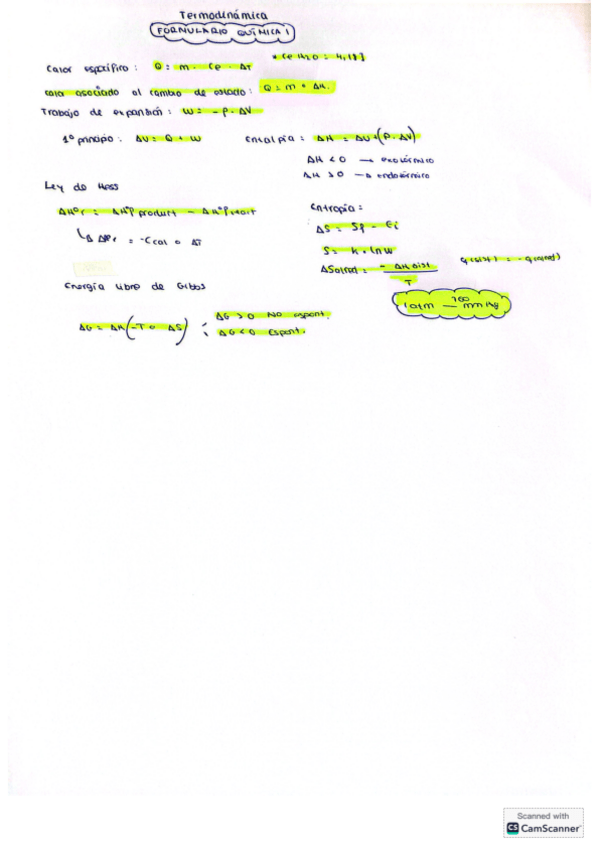 Termodinámica
FORMULARIO QUÍMICA I
* Ce H2O = 4,18 J
Calor específico : Q = m · Ce · ΔT
calor asociado al cambio de estado : Q = m · ΔH.
Trabajo de expansión : W = - P · ΔV
1º principio : ΔU = Q + W
Entalpía : ΔH = ΔU + (P · ΔV)
ΔH < 0 → exotérmico
ΔH > 0 → endotérmico
Ley de Hess
ΔHºr = ΔHºf product - ΔHºf react
= - Ccal · ΔT
Entropía :
ΔS = Sf - Ei
S = k · ln W
ΔSalred = - ΔH sist / T
q (sist) = - q (alred)
1 atm — 760 mm Hg
Energía libre de Gibbs
ΔG = ΔH (- T · ΔS) ; ΔG > 0 No espont.
ΔG < 0 Espont.
Scanned with
CS CamScanner